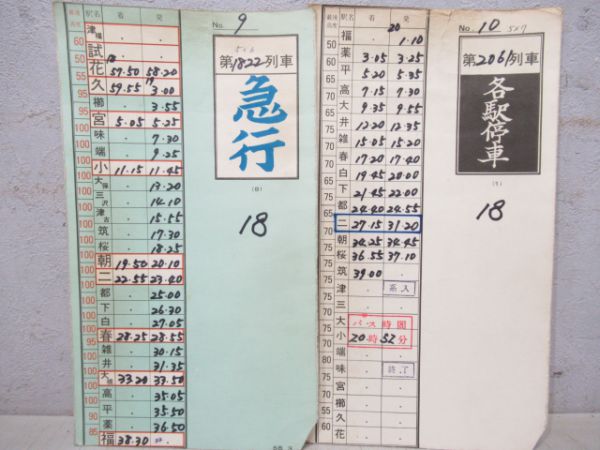 最高速度 駅名 着 発
津福 . .
60 試 . .
50 花 18 57.50 58.20
60 久 59.55 19 3.00
90 櫛 . 3.55
90 宮 5.05 5.25
100 味 . 7.30
100 端 . 9.25
100 小 11.15 11.45
100 大保 . 13.20
100 三沢 . 14.10
100 津古 . 15.15
100 筑 . 17.30
100 桜 . 18.25
100 朝 19.50 20.10
100 二 22.55 23.40
100 都 . 25.00
100 下 . 26.30
100 白 . 27.05
100 春 28.25 28.55
95 雑 . 30.15
井 . 31.35
大橋 33.20 33.50
100 高 . 35.05
100 平 . 35.50
100 薬 . 36.50
85 福 38.30
No. 9
第1822列車
急行
(B)
18
最高速度 駅名 着 発
福 . 20 1.10
50 薬 3.05 3.25
平 5.20 5.35
高 7.15 7.30
大 9.35 9.55
井 12.20 12.35
雑 15.05 15.20
春 17.20 17.40
白 19.45 20.00
下 21.45 22.00
都 24.40 24.55
二 27.15 31.20
朝 34.25 34.45
桜 36.55 37.10
筑 39.00
津 . 系入
三 . .
大 バス時間
小 20時52分
端 . .
味 . 終了
宮 . .
櫛 . .
久 . .
60 花 . .
No. 10
第2061列車
各駅停車
(T)
18